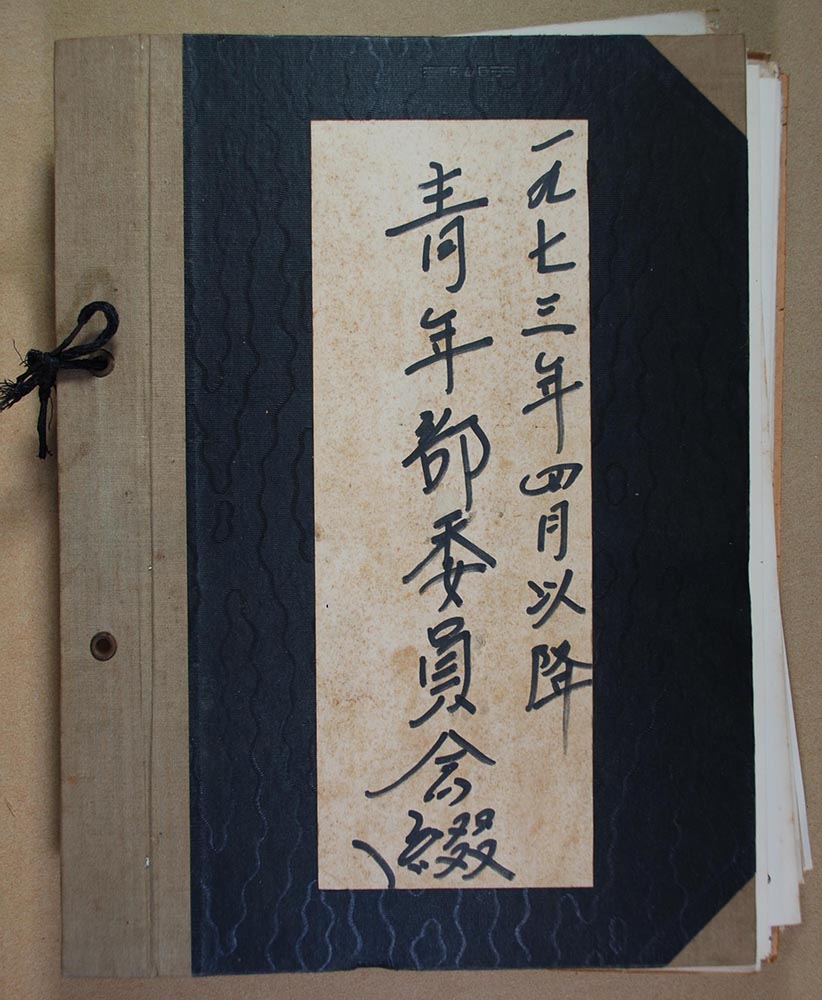 一九七三年四月以降
青年部委員会綴り